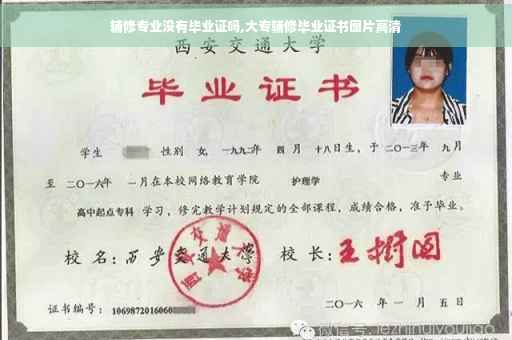 辅修专业没有毕业证吗,大专辅修毕业证书图片高清
西安交通大学
毕业证书
学生 性别 女,一九九二年 四 月 十八日生,于二〇一三年 九月
至 二〇一六年 一月在本校网络教育学院 护理学 专业
高中起点专科 学习,修完教学计划规定的全部课程,成绩合格,准予毕业。
校 名:西安交通大学 校 长:王树国
西安交通大学
证书编号: 1069872016060
二〇一六 年 一 月 五 日
微信号:jiezhihuiyoujiao